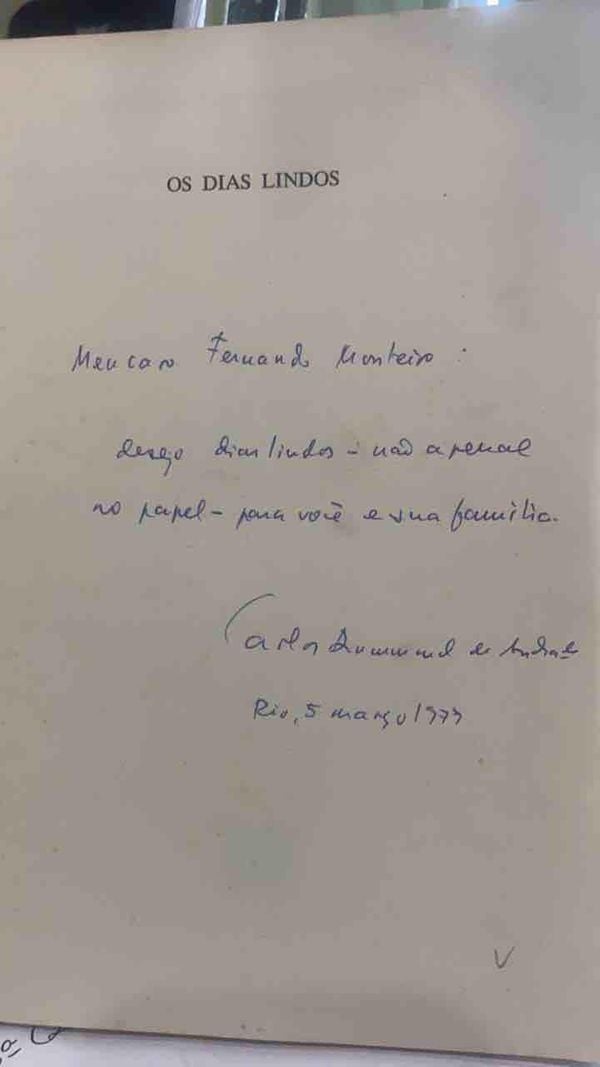 OS DIAS LINDOS
Meu caro Fernando Monteiro:
desejo dias lindos – não apenas
no papel – para você e sua família.
Carlos Drummond de Andrade
Rio, 5 março
V